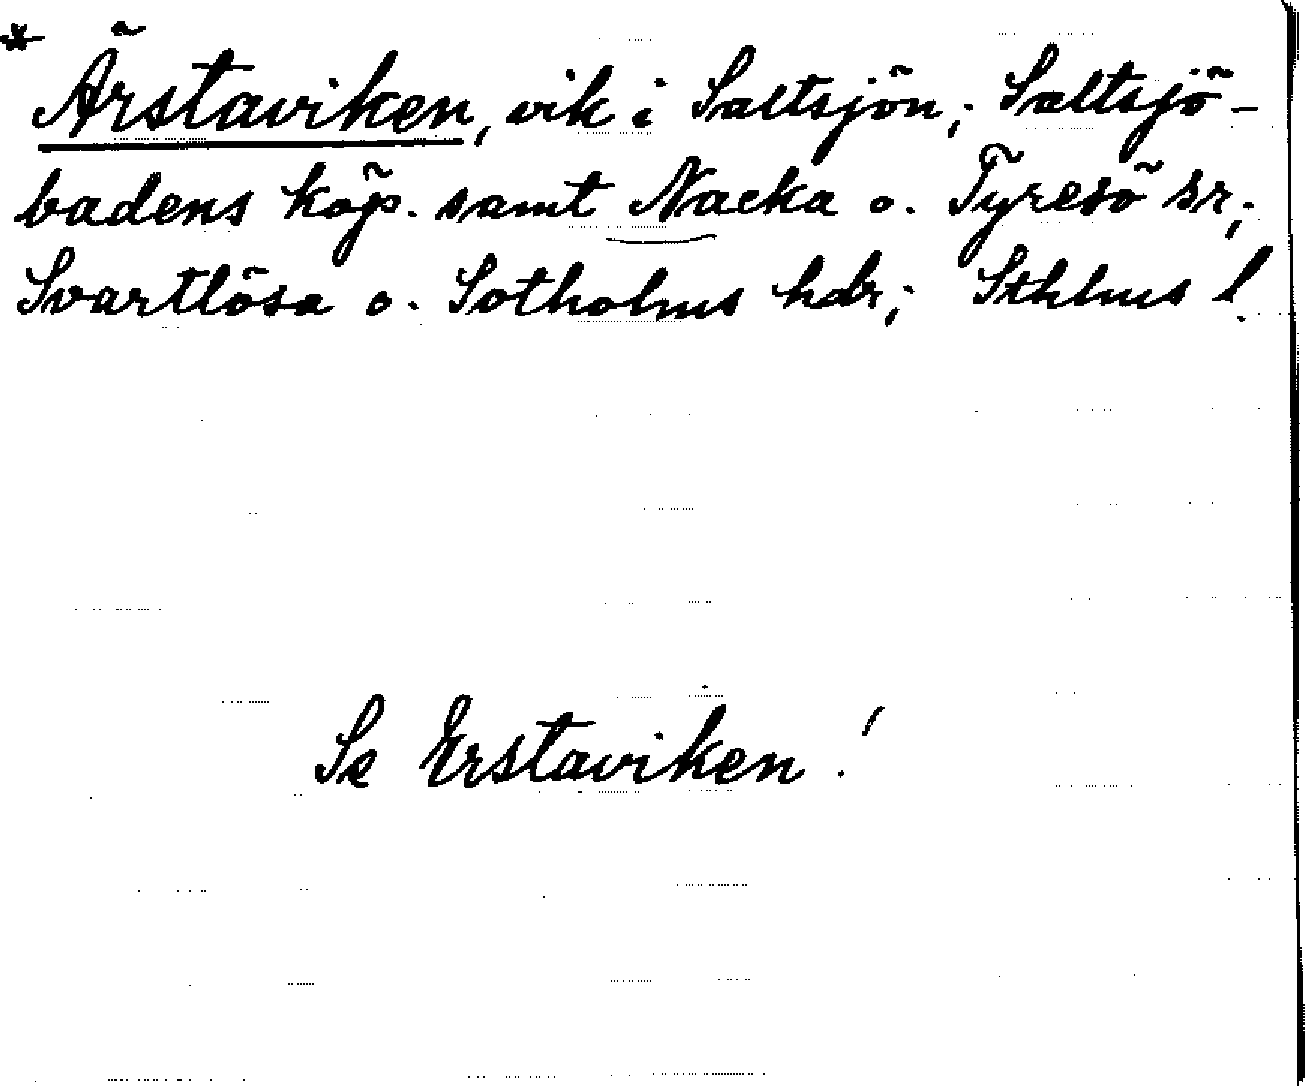 * Ärstaviken, vik i Saltsjön; Saltsjö-
badens köp. samt Nacka o. Tyresö sr;
Svartlösa o. Sotholms hdr; Sthlms l.
Se Erstaviken!